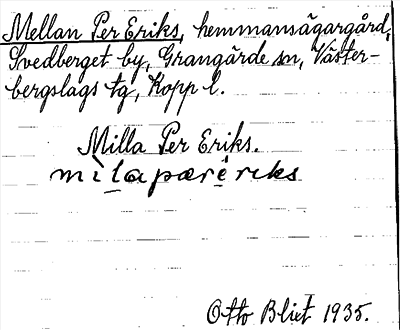 Mellan Per Eriks, hemmansägargård,
Svedberget by, Grangärde sn, Väster-
bergslags tg, Kopp l.
Milla Per Eriks.
mìlapærériks
Otto Blixt 1935.